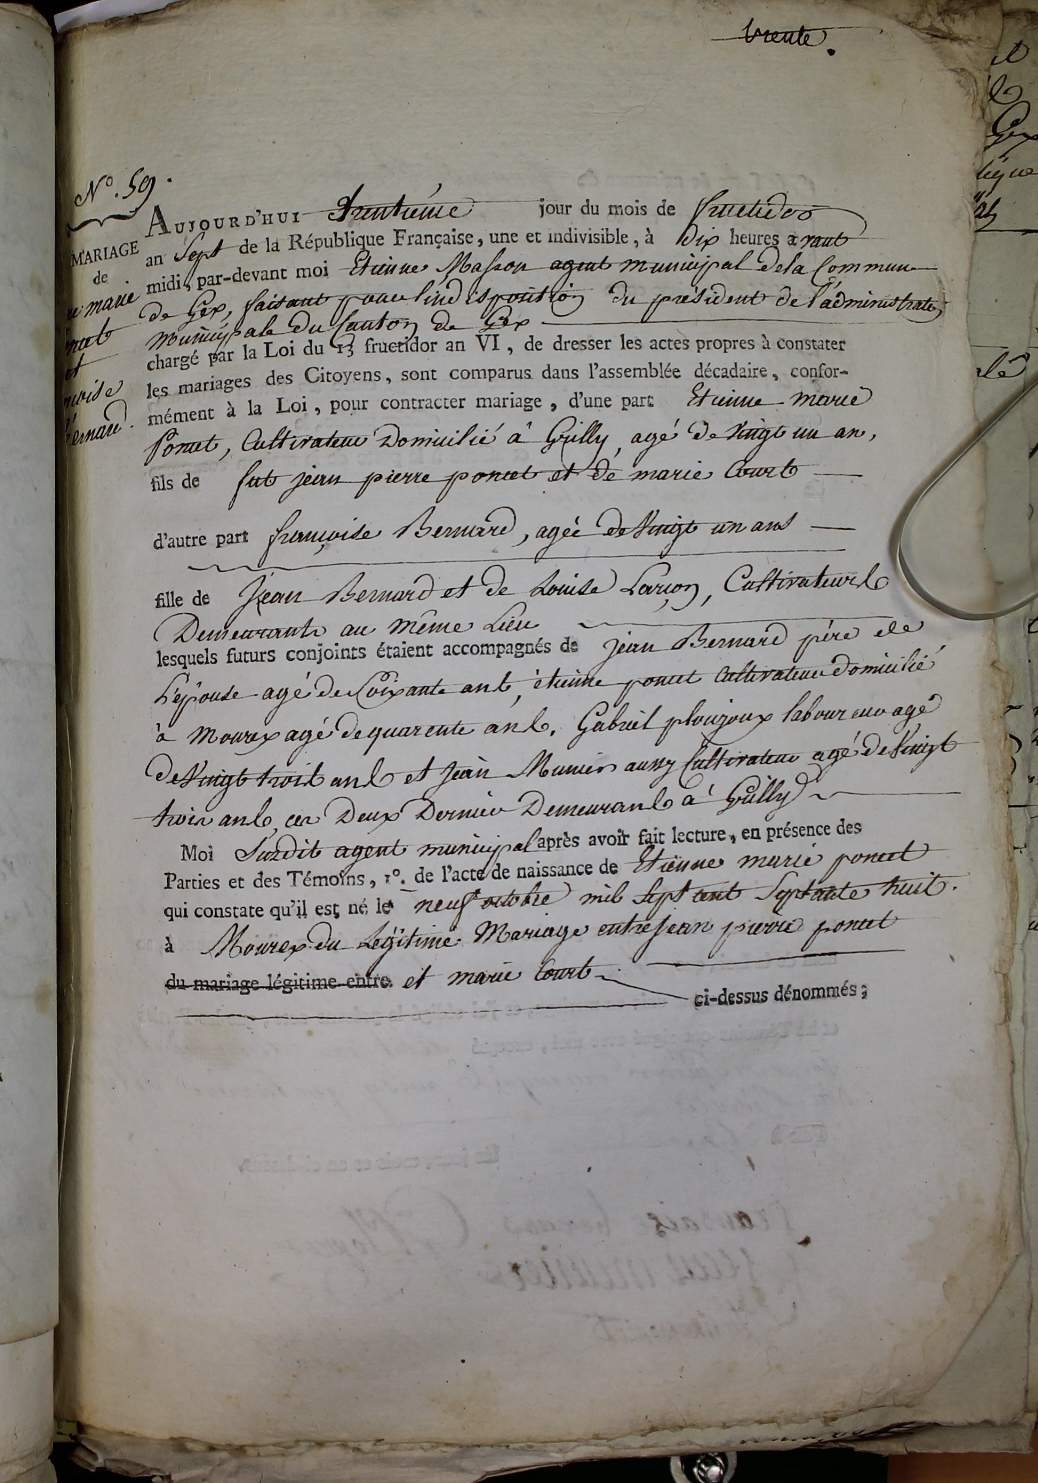 trente.
N°. 59.
MARIAGE
de
marie
et
Bernard.
AUJOURD'HUI trentième jour du mois de fructidor
an Sept de la République Française, une et indivisible, à dix heures avant
midi, par-devant moi Etienne Masson agent municipal de la Commune
de Gex, faisant pour l'indisposition du président de l'administration
municipale du Canton de Gex
chargé par la Loi du 13 fructidor an VI, de dresser les actes propres à constater
les mariages des Citoyens, sont comparus dans l'assemblée décadaire, confor-
mément à la Loi, pour contracter mariage, d'une part Etienne marie
Poncet, Cultivateur Domicilié à Grilly, agé de Vingt un an,
fils de fut jean pierre poncet et de marie Court
d'autre part françoise Bernard, agée de Vingt un ans
fille de Jean Bernard et de Louise Larçon, Cultivateurs
Demeurants au même Lieu
lesquels futurs conjoints étaient accompagnés de jean Bernard père de
L'épouse agé de Soixante ans, étienne poncet Cultivateur domicilié
à Mourex agé de quarente ans, Gabriel ploujoux laboureur agé
de Vingt trois ans et Jean Munier aussy Cultivateur agé de Vingt
trois ans, ces Deux Dernier Demeurants à Grilly
Moi Susdit agent municipal après avoir fait lecture, en présence des
Parties et des Témoins, 1°. de l'acte de naissance de Etienne marie poncet
qui constate qu'il est né le neuf octobre mil Sept cent Septante huit.
à Mourex du Légitime Mariage entre Jean pierre poncet
du mariage légitime entre et marie Court
ci-dessus dénommés;